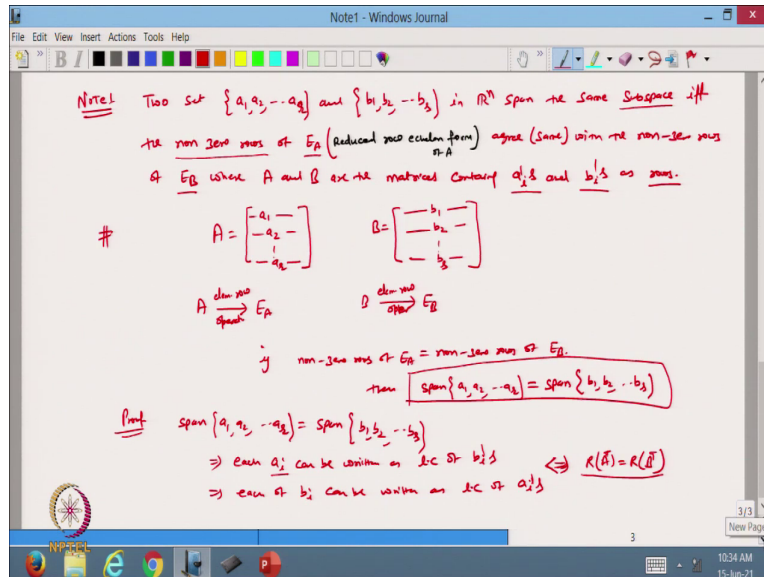 Note1 - Windows Journal
File Edit View Insert Actions Tools Help
Note1 Two set {a1, a2, --- ar} and {b1, b2, --- bs} in ℝⁿ span the same Subspace iff
the non zero rows of EA (Reduced row echelon form of A) agree (same) with the non-zero rows
of EB where A and B are the matrices containing ai's and bi's as rows.
# A = [— a1 — — a2 — ⋮ — ar —] B = [— b1 — — b2 — ⋮ — bs —]
A elem row operat → EA B elem row oper → EB
if non-zero rows of EA = non-zero rows of EB.
then span{a1, a2, --- ar} = span{b1, b2, --- bs}
Proof span{a1, a2, --- ar} = span{b1, b2, --- bs}
⇒ each ai can be written as l.c of bi's ⇔ R(Aᵀ) = R(Bᵀ)
⇒ each of bi can be written as l.c of ai's
3/3
New Page
3
NPTEL
10:34 AM
15-Jun-21